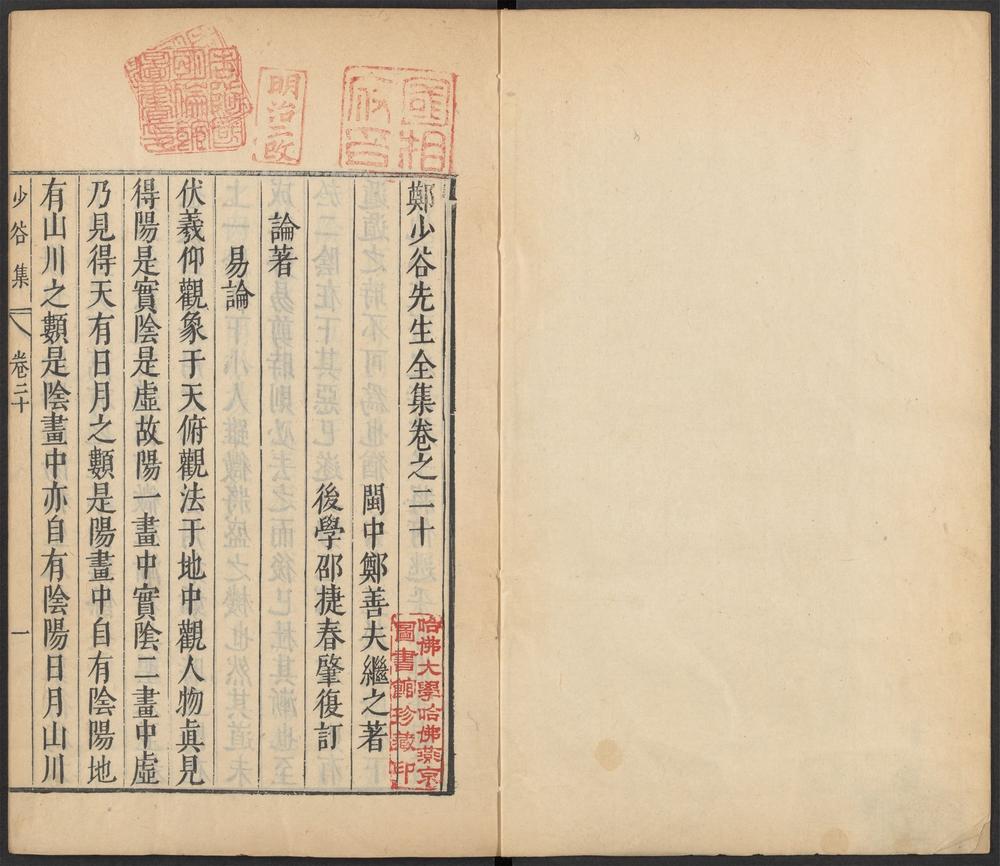 鄭少谷先生全集卷之二十
閩中鄭善夫繼之著
後學邵捷春肇復訂
論著
易論
伏羲仰觀象于天俯觀法于地中觀人物眞見
得陽是實陰是虛故陽一畫中實陰二畫中虛
乃見得天有日月之類是陽畫中自有陰陽地
有山川之類是陰畫中亦自有陰陽日月山川
少谷集
卷二十
一
明治二改
哈佛大學哈佛燕京
圖書館珍藏印